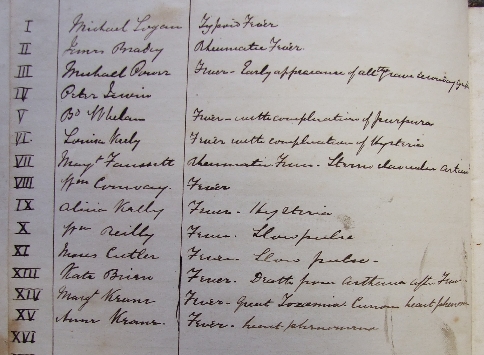 I Michael Logan Typoid Fever
II James Brady Rheumatic Fever.
III Michael Power Fever - Early appearance of all Grave
IV Peter
V Bd Whelan Fever - with complication of purpura
VI. Louisa Kiely Fever with complication of Hysteria
VII Margt Faussett Rheumatic Fever.
VIII Wm Conway. Fever
IX Alicia Kelly Fever - Hysteria
X Wm Reilly Fever. Slow pulse
XI Moses Cutler Fever Slow pulse -
XIII Kate Brien Fever. Death from asthma after Fever.
XIV Margt Keane Fever - great Toxaemia Curious heart phenom
XV Anne Keane. Fever - heart phenomena
XVI